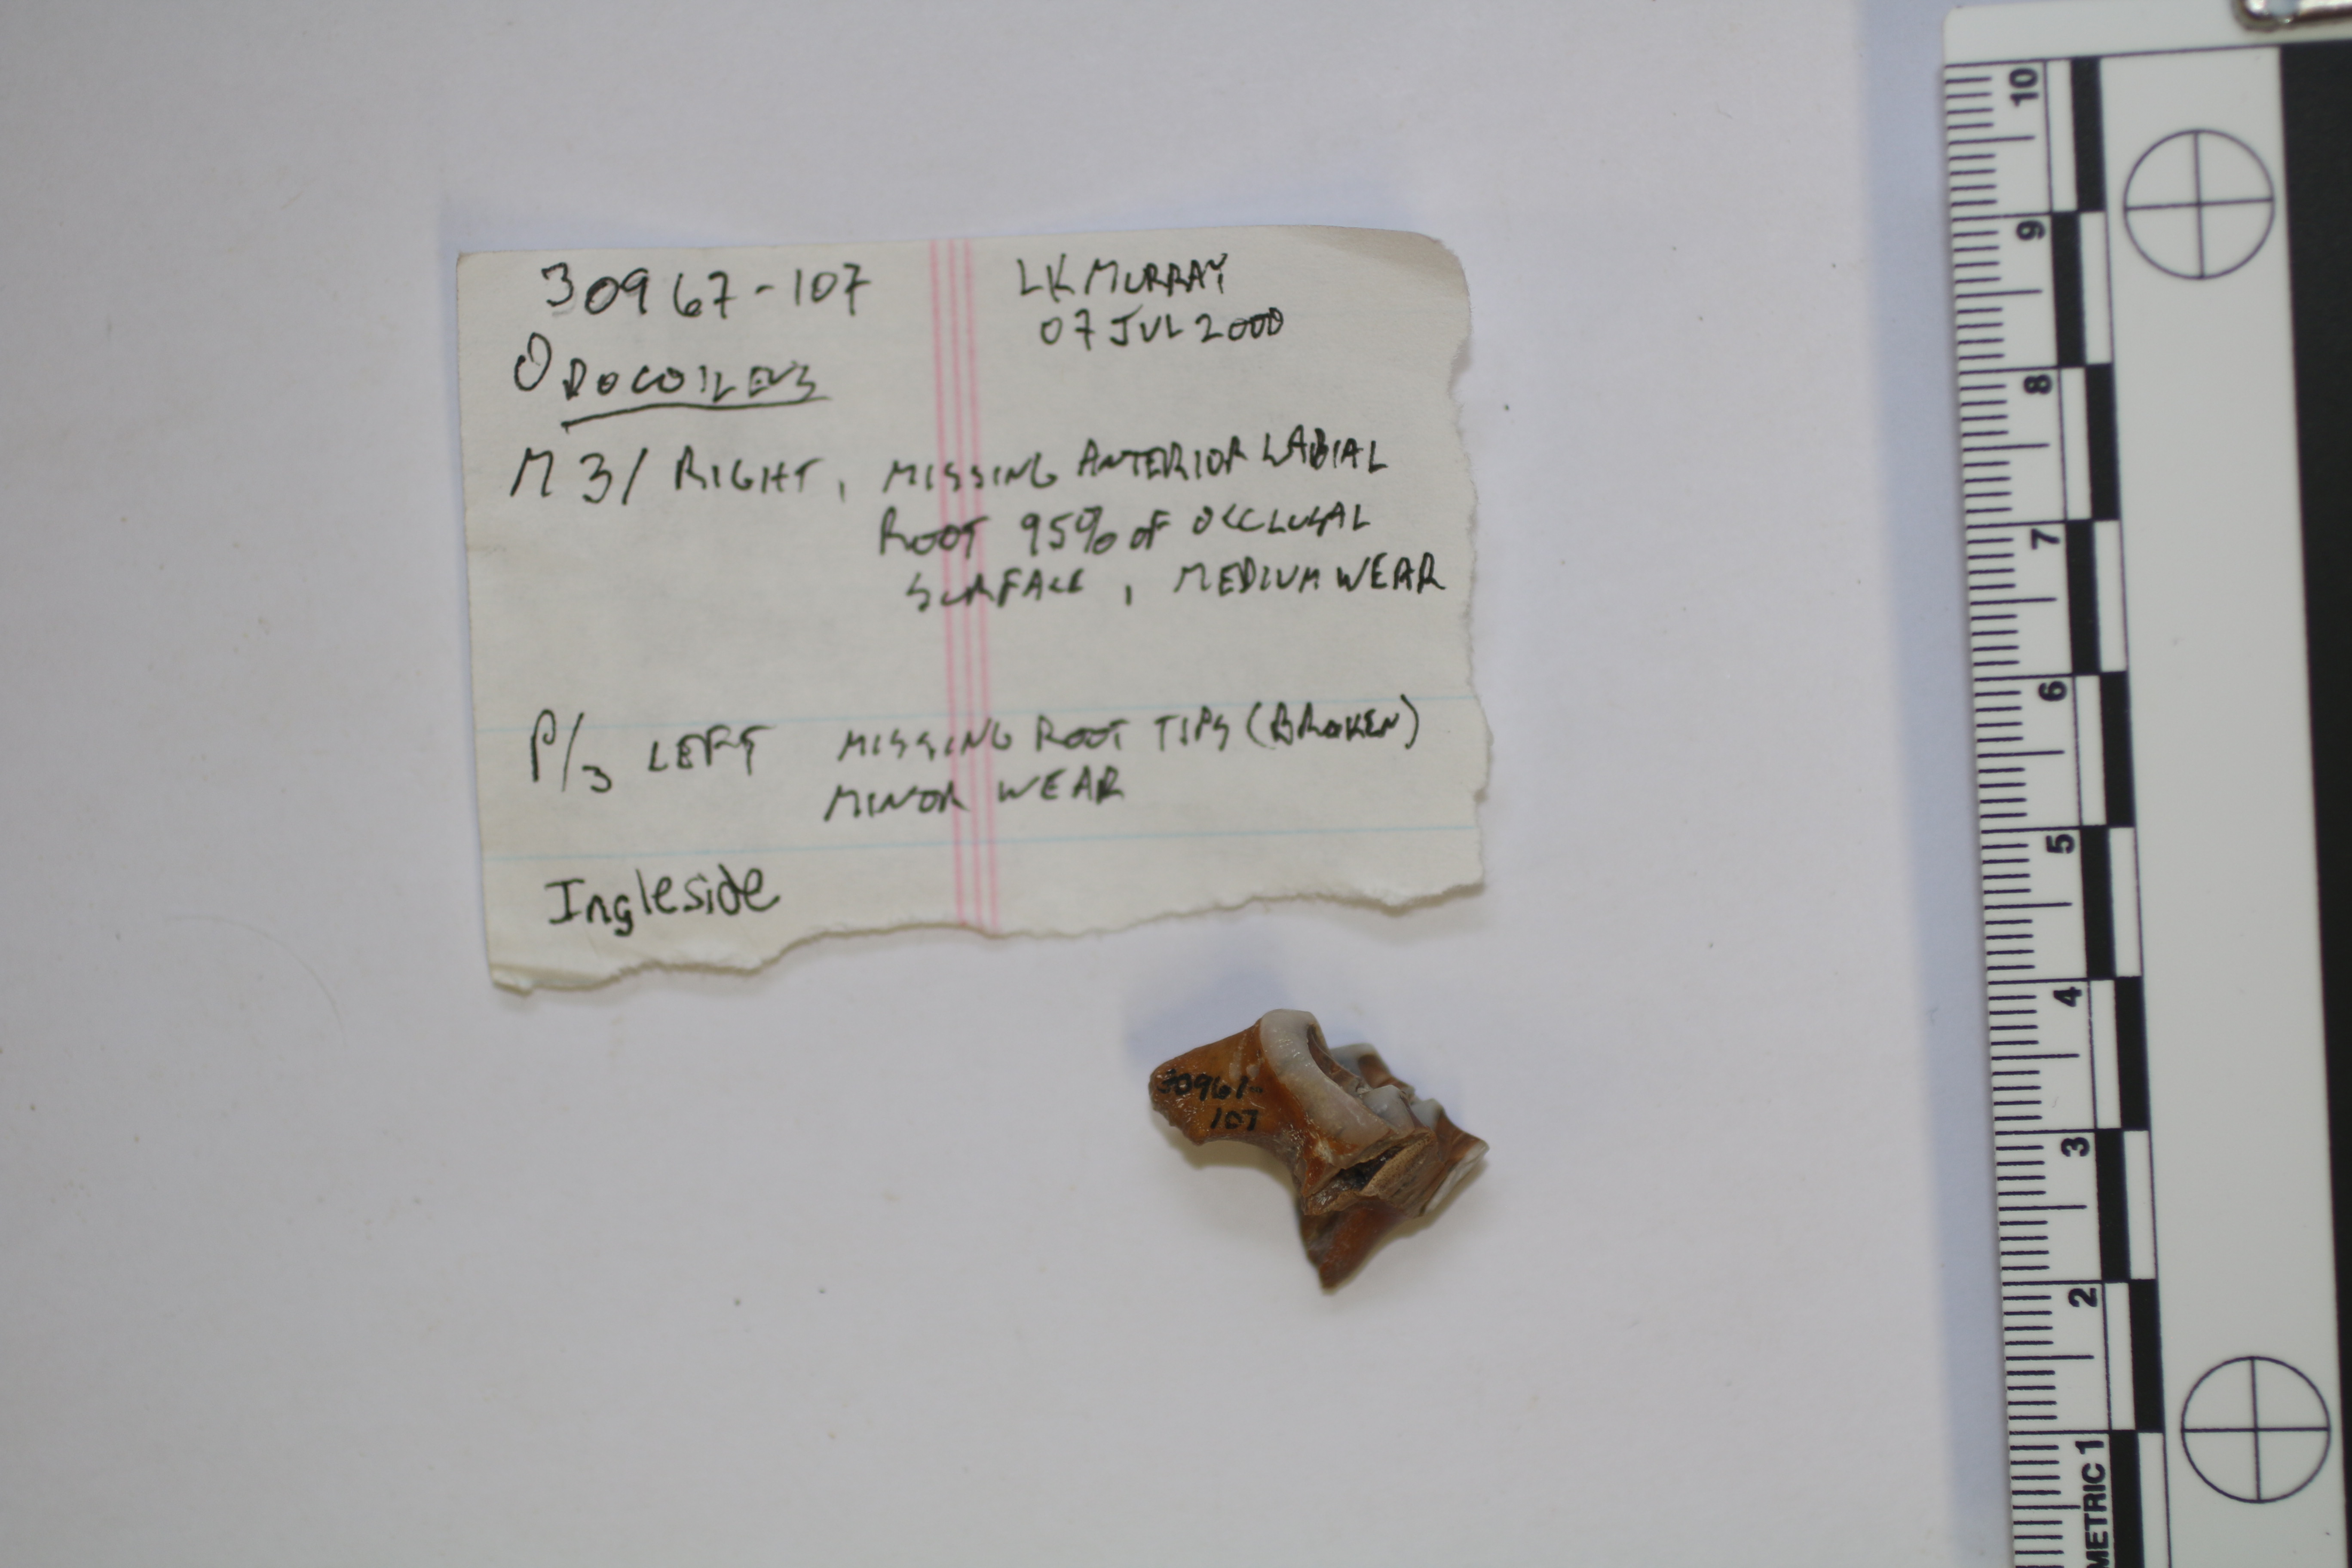 30967-107
LK MURRAY
07 JUL 2000
ODOCOILEUS
M 3/ RIGHT, MISSING ANTERIOR LABIAL
ROOT 95% OF OCCLUSAL
SURFACE, MEDIUM WEAR
P/3 LEFT MISSING ROOT TIPS (BROKEN)
MINOR WEAR
Ingleside
30967-
107
10
9
8
7
6
5
4
3
2
METRIC 1